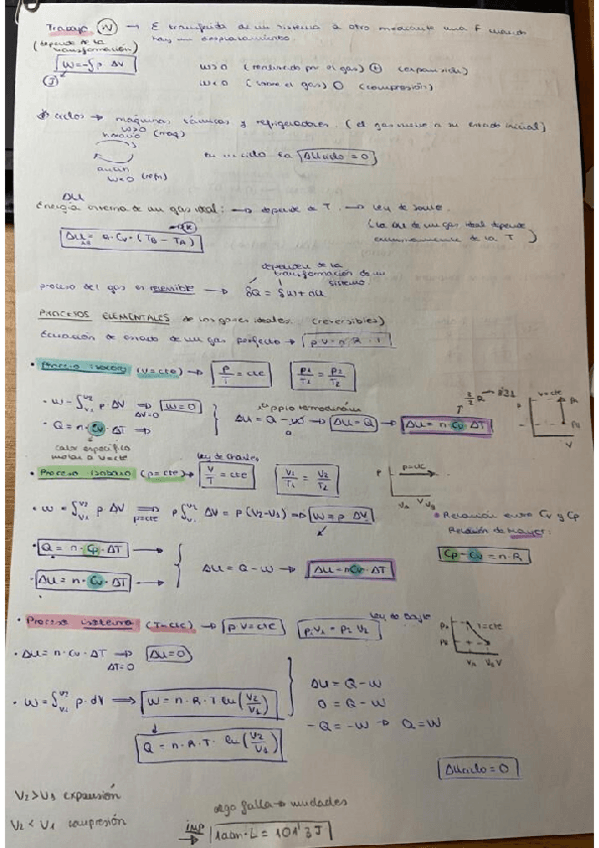 Trabajo (W) → E transferida de un sistema a otro mediante una F cuando
hay un desplazamiento.
(depende de la transformación)
W = -∫ p ΔV
(J)
W>0 (realizado por el gas) ⊕ (expansión)
W<0 (sobre el gas) ⊖ (compresión)
ciclos → máquinas térmicas y refrigeradores. (el gas vuelve a su estado inicial)
W>0
horario (maq)
antih
W<0 (refri)
En un ciclo ΔUciclo = 0
ΔU
Energía interna de un gas ideal: → depende de T → Ley de Joule.
(La de un gas ideal depende
únicamente de la T)
ΔU = n · Cv · (TB - TA)
dependen de la
transformación de un
sistema
proceso del gas es reversible → δQ = δW + dU
PROCESOS ELEMENTALES de los gases ideales. (reversibles)
Ecuación de estado de un gas perfecto → p·V = n·R·T
• Proceso isocoro (V=cte) → P/T = cte P1/T1 = P2/T2
• W = ∫V1 V2 p ΔV ⇒ ΔV=0 W=0
• Q = n · Cv · ΔT
calor específico
molar a V=cte
1º ppio termodinámica
ΔU = Q - W → ΔU = Q → ΔU = n·Cv·ΔT
V=cte
• Proceso isobaro (p=cte) → V/T = cte V1/T1 = V2/T2
Ley de Charles
p=cte
• W = ∫V1 V2 p ΔV ⇒ p=cte p ∫V1 V2 ΔV = p(V2-V1) ⇒ W = p ΔV
• Relación entre Cv y Cp
Relación de Mayer:
Cp - Cv = n·R
• Q = n · Cp · ΔT →
• ΔU = n · Cv · ΔT →
ΔU = Q - W → ΔU = n·Cv·ΔT
• Proceso isotermo (T=cte) → p·V = cte p1V1 = p2V2
Ley de Boyle
T=cte
• ΔU = n · Cv · ΔT ⇒ ΔT=0 ΔU=0
• W = ∫V1 V2 p·dV ⇒ W = n·R·T·ln(V2/V1)
Q = n·R·T·ln(V2/V1)
ΔU = Q - W
0 = Q - W
-Q = -W ⇒ Q = W
ΔUciclo = 0
V2 > V1 expansión
V2 < V1 compresión
algo falla → unidades
IMP ⇒ 1atm·L = 101'3 J